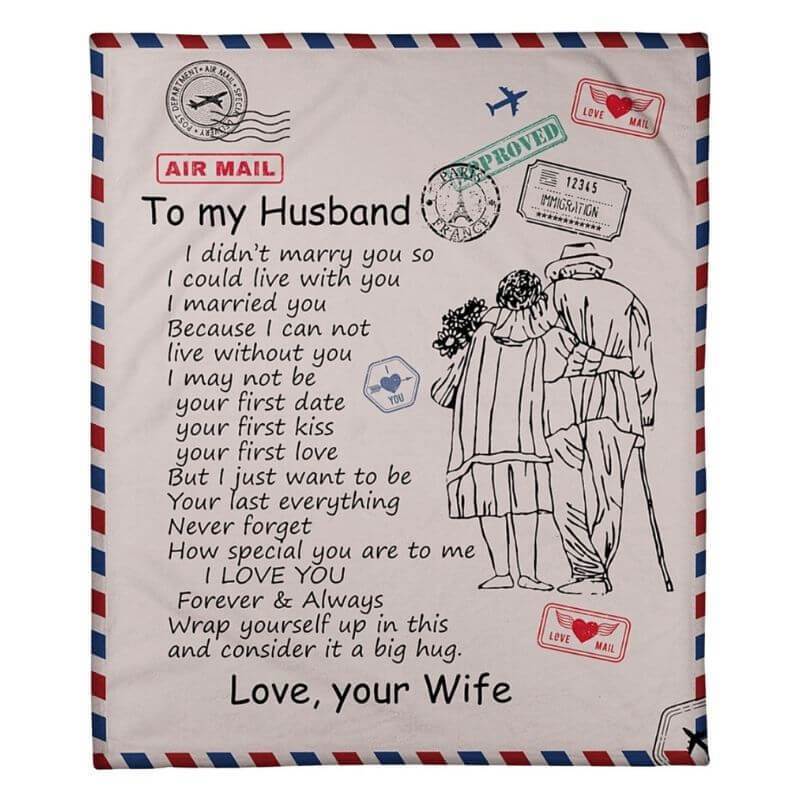 POST DEPARTMENT • AIR MAIL • SPECIAL DELIVERY
AIR MAIL
LOVE MAIL
APPROVED
PARIS
FRANCE
12345
IMMIGRATION
***********
To my Husband
I didn't marry you so
I could live with you
I married you
Because I can not
live without you
I may not be
your first date
your first kiss
your first love
But I just want to be
Your last everything
Never forget
How special you are to me
I LOVE YOU
Forever & Always
Wrap yourself up in this
and consider it a big hug.
Love, your Wife
I
YOU
LOVE MAIL